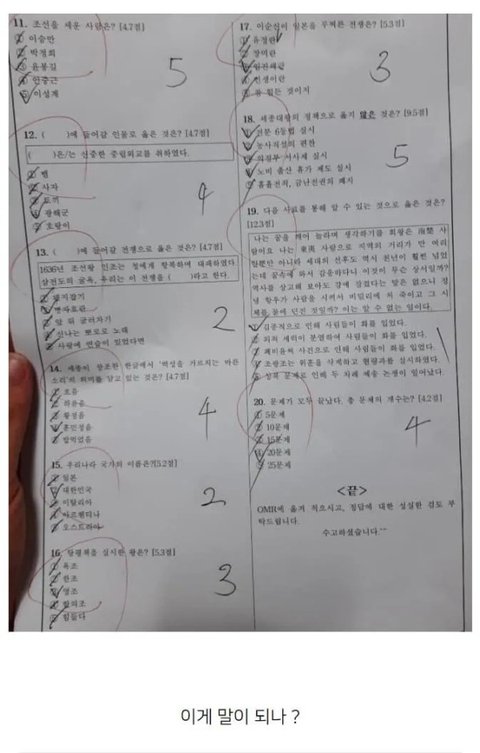 11. 조선을 세운 사람은? [4.7점]
① 이승만
② 박정희
③ 윤봉길
④ 안중근
⑤ 이성계
5
12. ( )에 들어갈 인물로 옳은 것은? [4.7점]
( )은/는 신중한 중립외교를 취하였다.
① 뱀
② 사자
③ 토끼
④ 광해군
⑤ 호랑이
4
13. ( )에 들어갈 전쟁으로 옳은 것은? [4.7점]
1636년 조선왕 인조는 청에게 항복하며 대패하였다.
삼전도의 굴욕, 우리는 이 전쟁을 ( )라고 한다.
② 병자호란
③ 앞 뒤 굴러차기
④ 신나는 뽀로로 노래
⑤ 사랑에 연습이 있었다면
2
14. 세종이 창조한 한글에서 '백성을 가르치는 바른
소리'의 의미를 담고 있는 것은? [4.7점]
① 흐음
② 하음음
③ 황정음
④ 훈민정음
⑤ 밥먹었음
4
15. 우리나라 국가의 이름은?[5.2점]
① 일본
② 대한민국
③ 이탈리아
④ 아르헨티나
⑤ 오스트리아
2
16. 탕평책을 실시한 왕은? [5.3점]
① 욕조
② 한조
③ 영조
④ 합의조
⑤ 힘들다
3
17. 이순신이 일본을 무찌른 전쟁은? [5.3점]
① 유정란
② 장미란
③ 임진왜란
④ 인생이란
⑤ 잠 원는 것이지
3
18. 세종대왕의 정책으로 옳지 않은 것은? [9.5점]
① 전분 6등법 실시
② 농사직설의 편찬
③ 의정부 서사제 실시
④ 노비 출산 휴가 제도 실시
⑤ 흉흉전치, 금난전권의 폐지
5
19. 다음 사료를 통해 알 수 있는 것으로 옳은 것은?
[12.3점]
나는 꿈을 깨어 놀라며 생각하기를 회왕은 南楚 사
람이요 나는 東夷 사람으로 지역의 거리가 만 여리
될뿐만 아니라 세대의 선후도 역시 천년이 훨씬 넘었
는데 꿈속에 와서 감응하다니 이것이 무슨 상서일까?
역사를 상고해 보아도 강에 잠겼다는 말은 없으니 정
녕 항우가 사람을 시켜서 비밀리에 쳐 죽이고 그 시
체를 물에 던진 것일까? 이는 알 수 없는 일이다.
① 김종직으로 인해 사림들이 화를 입었다.
② 외척 세력이 분열하여 사림들이 화를 입었다.
③ 폐비윤씨 사건으로 인해 사림들이 화를 입었다.
④ 조광조는 위훈을 삭제하고 현량과를 실시하였다.
⑤ 상복 문제로 인해 두 차례 예송 논쟁이 일어났다.
20. 문제가 모두 끝났다. 총 문제의 개수는? [4.2점]
① 5문제
② 10문제
③ 15문제
④ 20문제
⑤ 25문제
4
<끝>
OMR에 옮겨 적으시고, 정답에 대한 성실한 검토 부
탁드립니다.
수고하셨습니다.^^
이게 말이 되나 ?